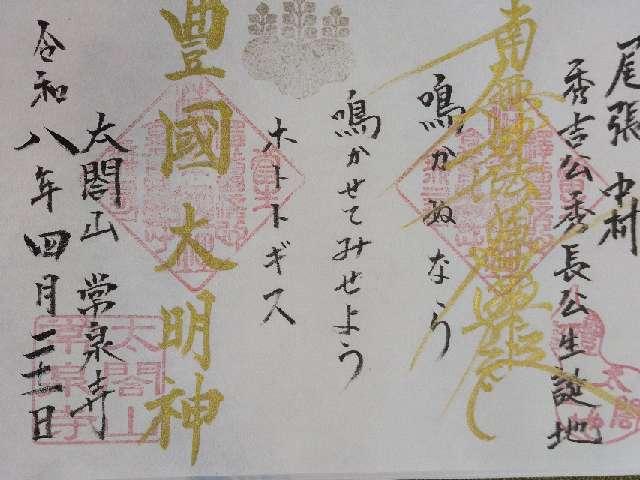 尾張 中村
秀吉公秀長公生誕地
南無妙法蓮華経
鳴かぬなら
鳴かせてみせよう
ホトトギス
豊國大明神
太閤山 常泉寺
令和八年四月二十二日
太閤山
常泉寺
太閤